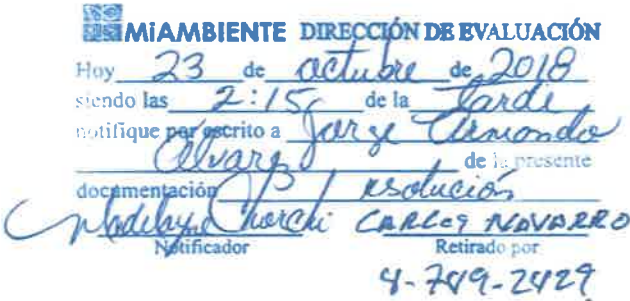 MiAMBIENTE DIRECCIÓN DE EVALUACIÓN
Hoy 23 de octubre de 2018
siendo las 2:15 de la tarde
notifique por escrito a Jorge Armando
Alvarez de la presente
documentación resolución
Chorchi CARLOS NAVARRO
Notificador Retirado por
4-749-2429